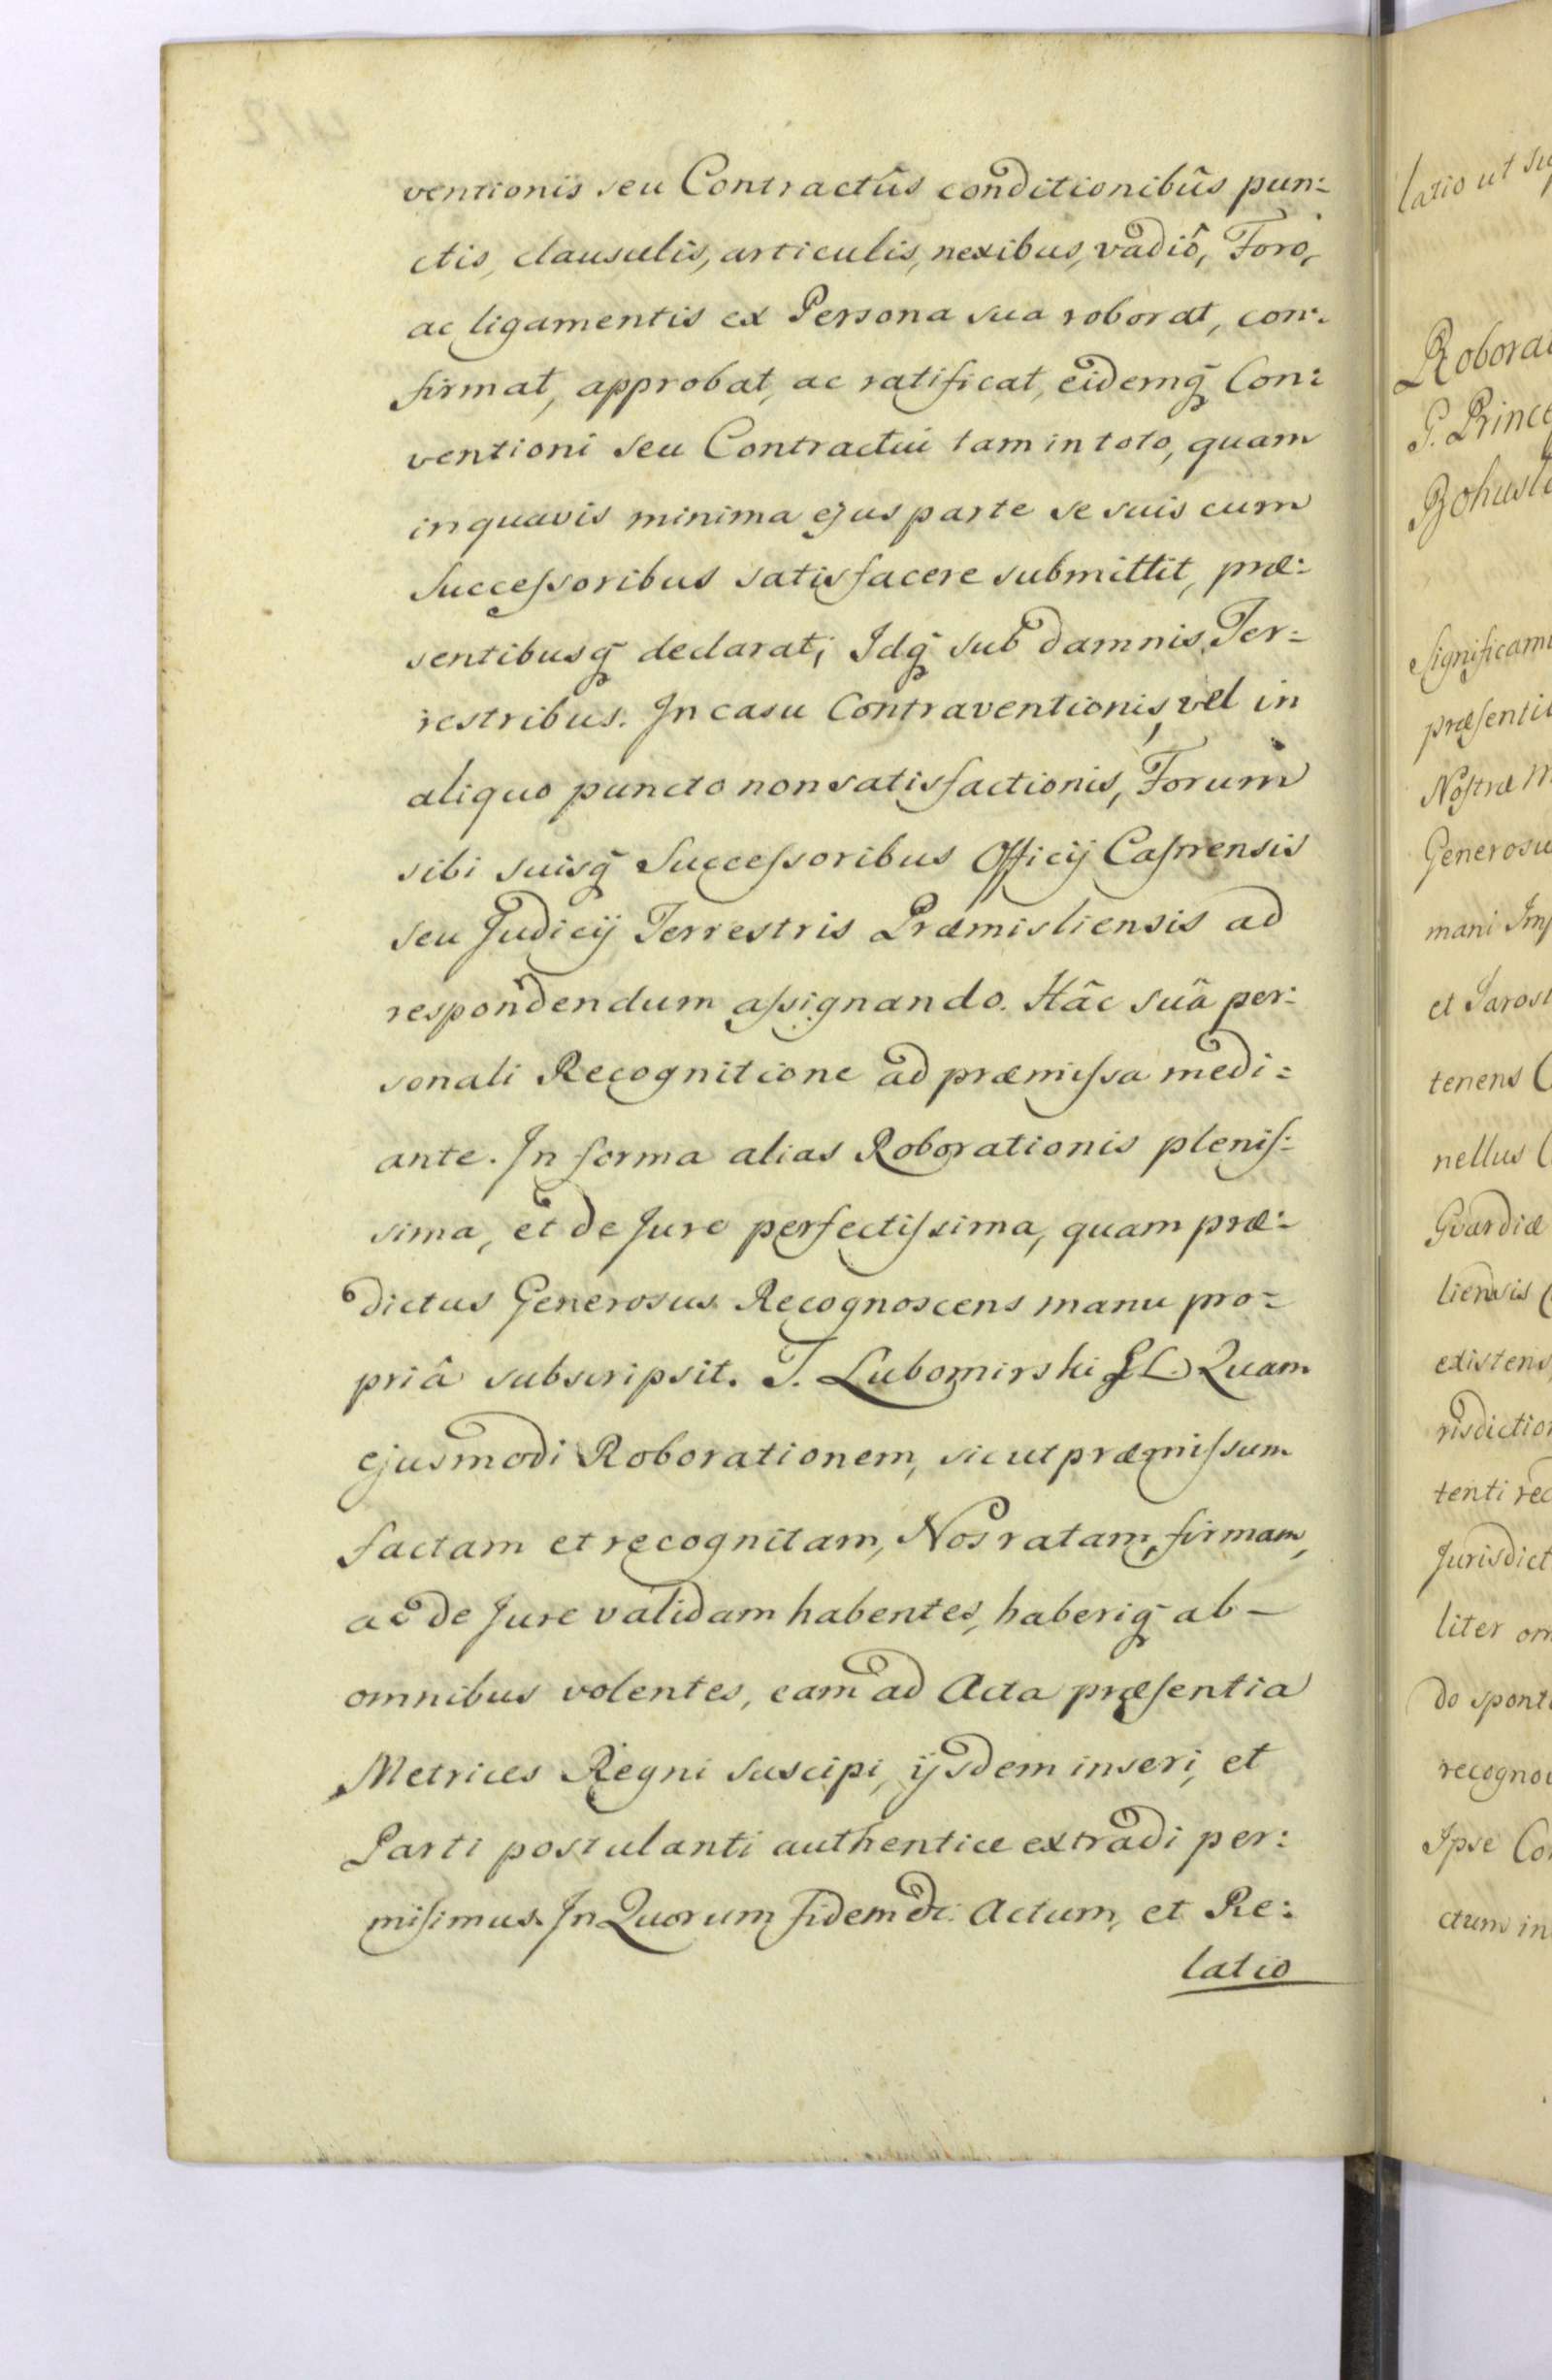 ventionis seu Contractûs conditionibûs pun:
ctis, clausulis, articulis, nexibus, vadiô, Foro,
ac ligamentis ex Persona sua roborat, con:
firmat, approbat, ac ratificat, eidemq̃ Con:
ventioni seu Contractui tam in toto, quam
in quavis minima ejus parte se suis cum
Succeſsoribus satisfacere submittit, præ:
sentibusq̃ declarat; Idq̃ sub damnis Ter=
restribus. In casu Contraventionis, vel in
aliquo puncto non satisfactionis, Forum
sibi suisq̃ Succeſsoribus Officij Caſtrensis
seu Judicij Terrestris Præmisliensis ad
respondendum aſsignando. Hâc suâ per:
sonali Recognitione ad præmiſsa medi=
ante. In forma alias Roborationis pleniſ:
sima, et de Jure perfectiſsima, quam præ:
dictus Generosus Recognoscens manu pro=
priâ subscripsit. J. Lubomirski Quam
ejusmodi Roborationem, sicut præmiſsum
factam et recognitam, Nos ratam, firmam,
ac de Jure validam habentes, haberiq̃ ab-
omnibus volentes, eam ad Acta præſentia
Metrices Regni suscipi, ijsdem inseri, et
Parti postulanti authentice extradi per:
miſimus. In Quorum fidem &c. Actum, et Re:
latio
latio ut
Roborat
G.
significam
præſenti
Noſtræ
Generosu
mani
et Jarosl
tenens
nellus
Gvardiæ
liensis
existens
risdiction
tenti rec
Jurisdict
liter om
do spont
recogno
Ipse Co
ctum in